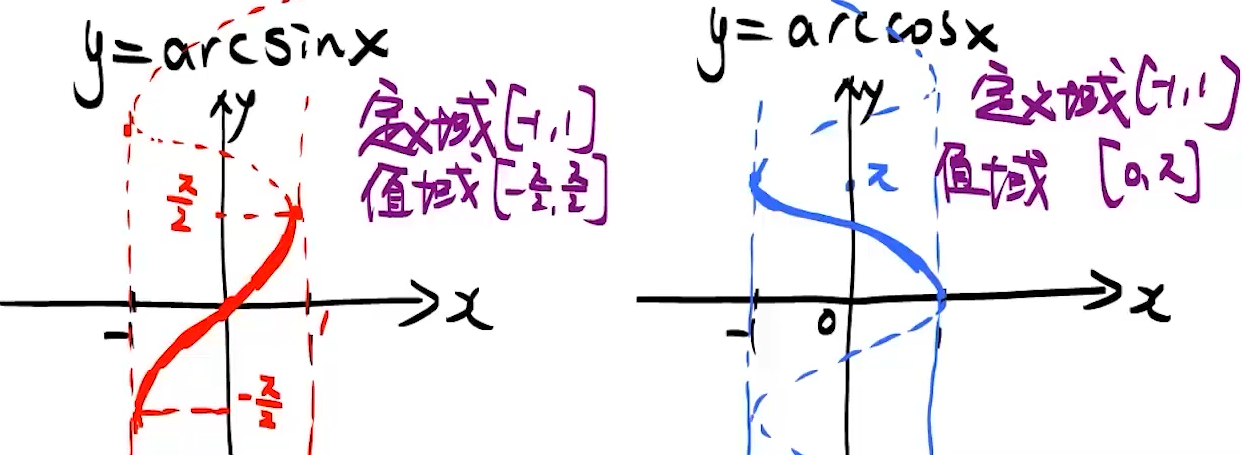 y=arcsinx
y
定义域[-1,1]
值域[-π/2,π/2]
π/2
x
-1
1
-π/2
y=arccosx
y
定义域[-1,1]
值域 [0,π]
π
x
-1
0
1